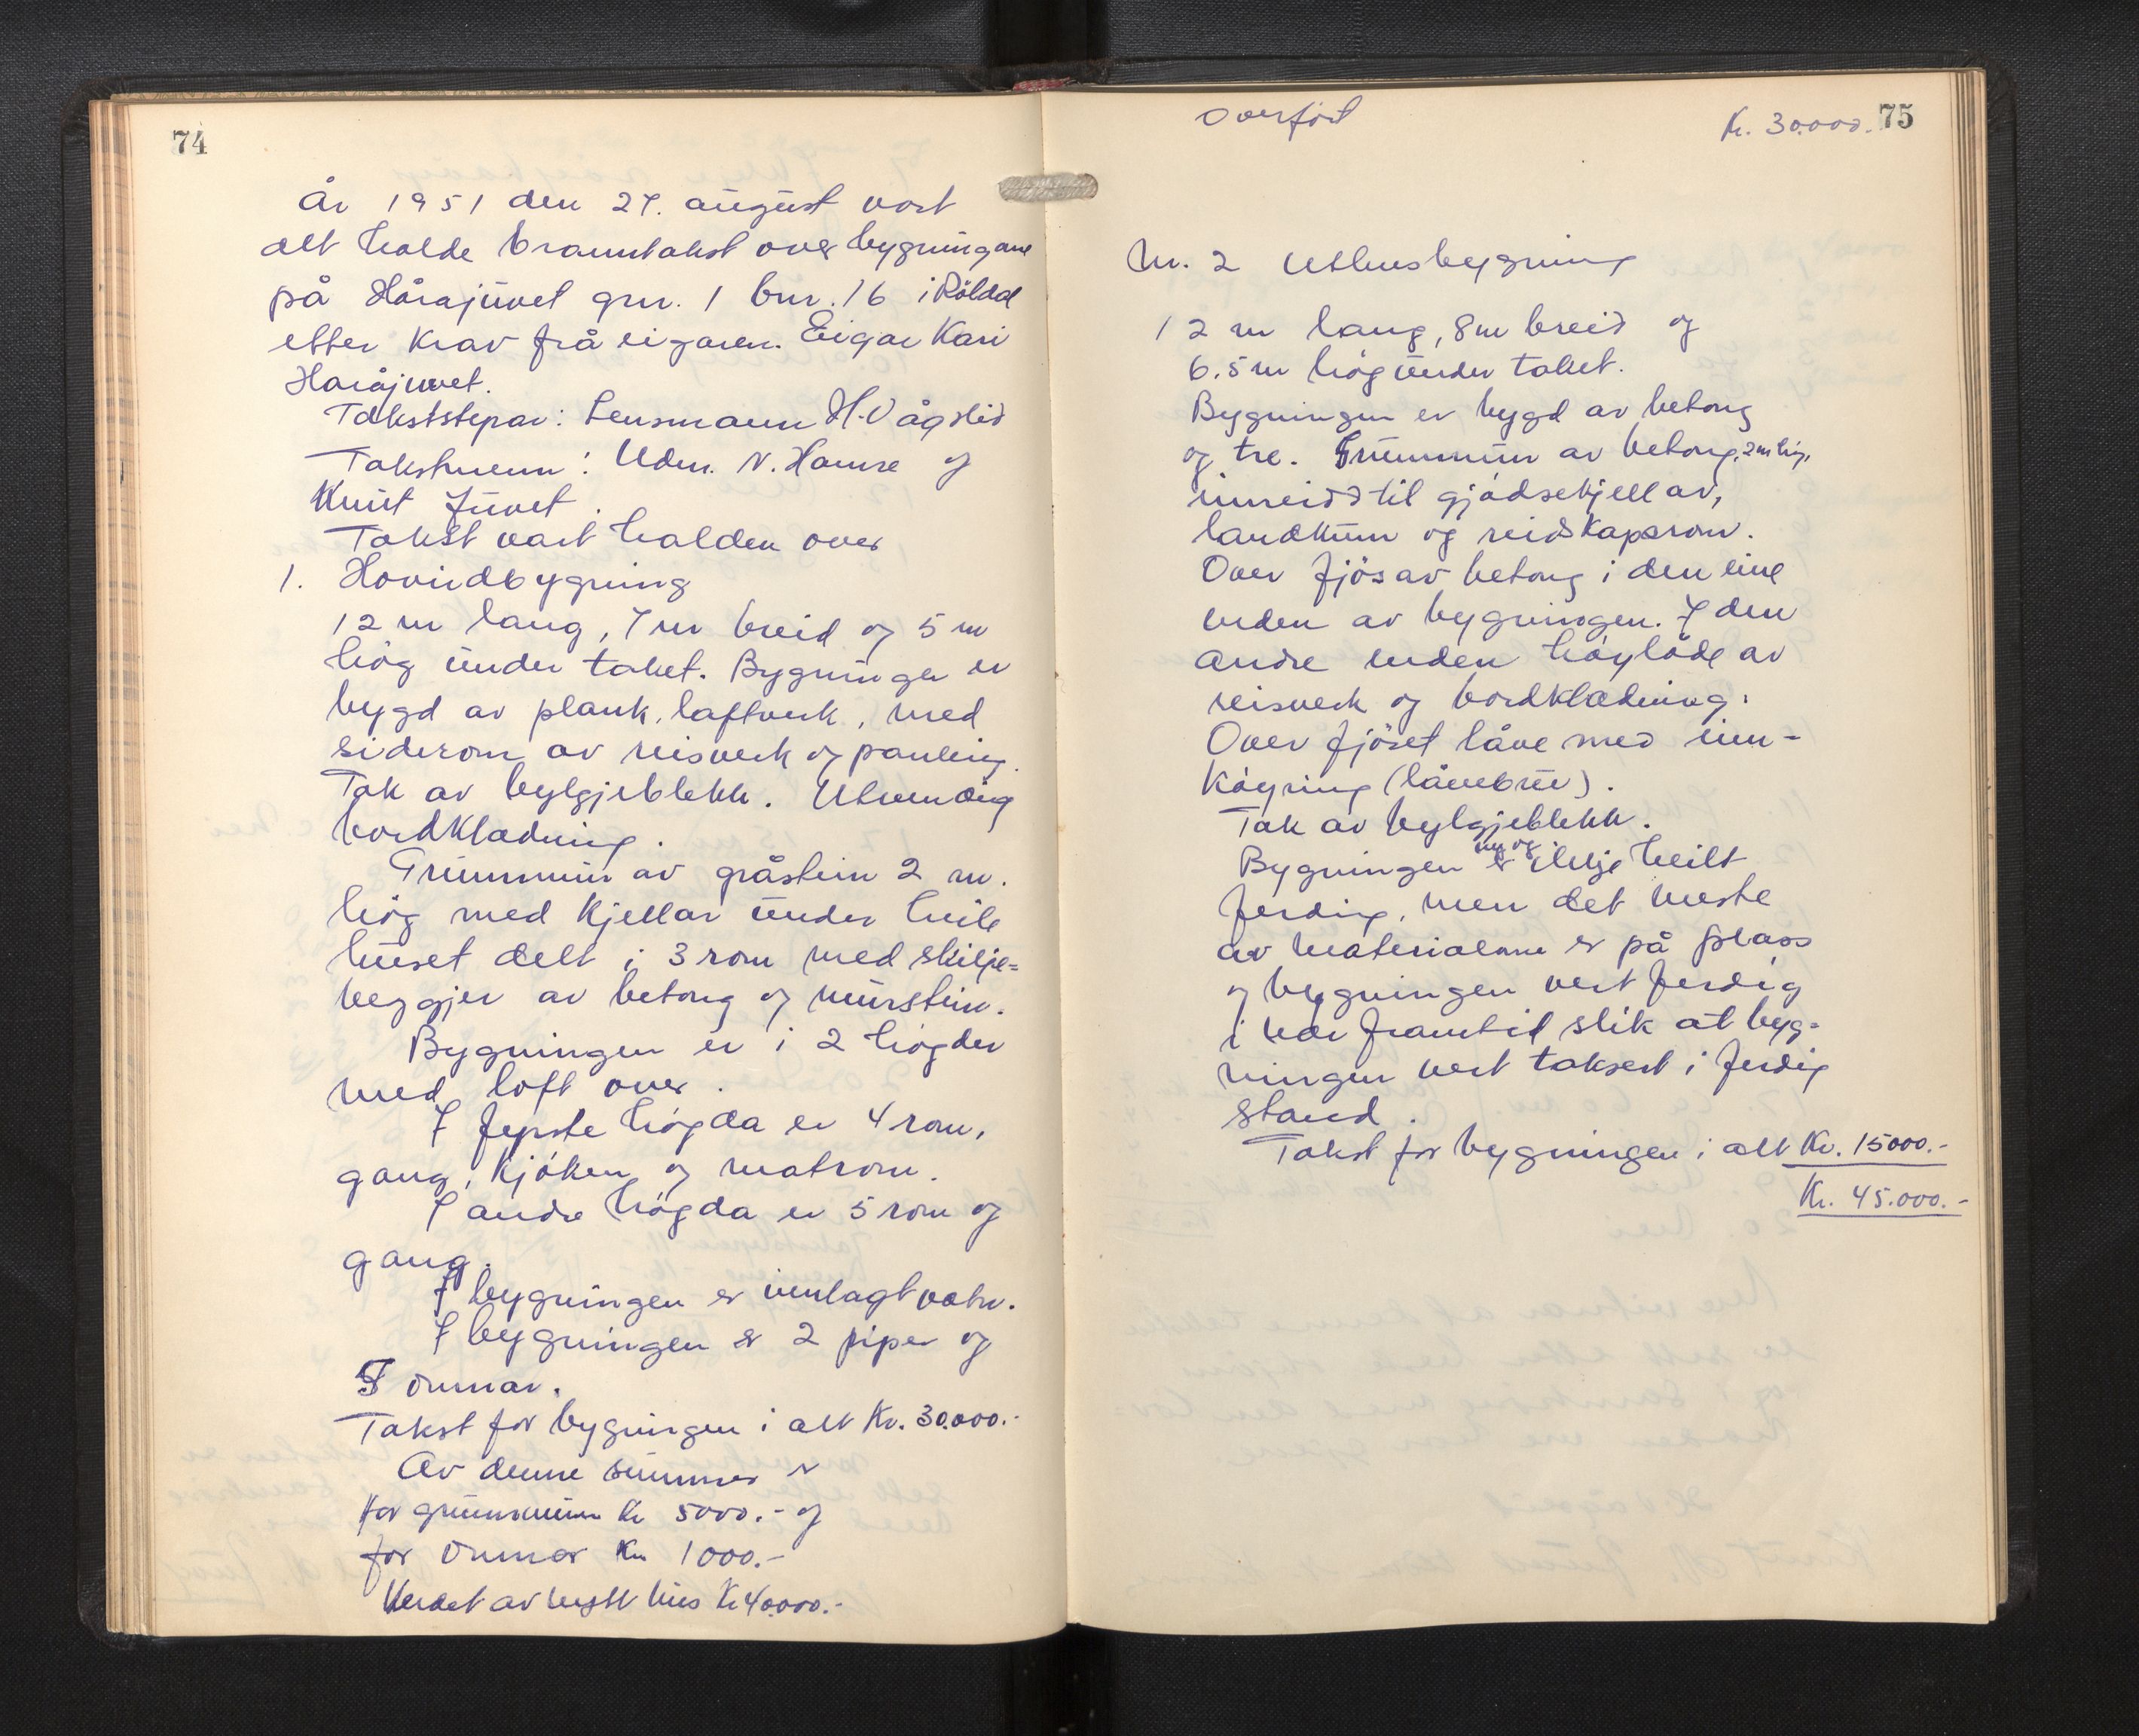 74
År 1951 den 27. august vart
det halde branntakst over bygningane
på Hårajuvet gnr. 1 bnr. 16 i Röldal
etter krav frå eigaren. Eigar Kari
Haråjuvet.
Takststypar: Lensmann H. Vågslid
Takstmenn: Udm. N. Hamre og
Knut Juvet.
Takst vart halden over
1. Hovudbygning
12 m lang, 7 m breid og 5 m
høg under taket. Bygningen er
bygd av plank, laftverk, med
siderom av reisverk og panling.
Tak av bylgjeblekk. Utvendig
bordkledning.
Grunnmur av gråstein 2 m.
høg med kjellar under heile
huset delt i 3 rom med skilje=
veggjer av betong og murstein.
Bygningen er i 2 høgder
med loft over.
I fyrste høgda er 4 rom,
gang, kjøken og matrom.
I andre høgda er 5 rom og
gang.
I bygningen er innlagt vatn.
I bygningen er 2 piper og
omnar.
Takst for bygningen i alt Kr. 30.000.-
Av denne summen er
for grunnmuren kr 5000.- og
for omnar kr 1000.-
Verdet av nytt hus kr 40.000.-
Overført Kr. 30.000. 75
Nr. 2 Uthusbygning
12 m lang, 8 m breid og
6.5 m høg under taket.
Bygningen er bygd av betong
og tre. Grunnmur av betong, 2 m høg,
innreidd til gjødselkjellar,
landkum og reidskapsrom.
Over fjøs av betong i den eine
enden av bygningen. I den
andre enden høyløde av
reisverk og bordkledning.
Over fjøset låve med inn-
køyring (låvebru).
Tak av bylgjeblekk.
Bygningen er ny og ikkje heilt
ferdig, men det meste
av materialane er på plass
og bygningen vert ferdig
i nær framtid slik at byg=
ningen vert taksert i ferdig
stand.
Takst for bygningen i alt Kr. 15000.-
Kr. 45.000.-